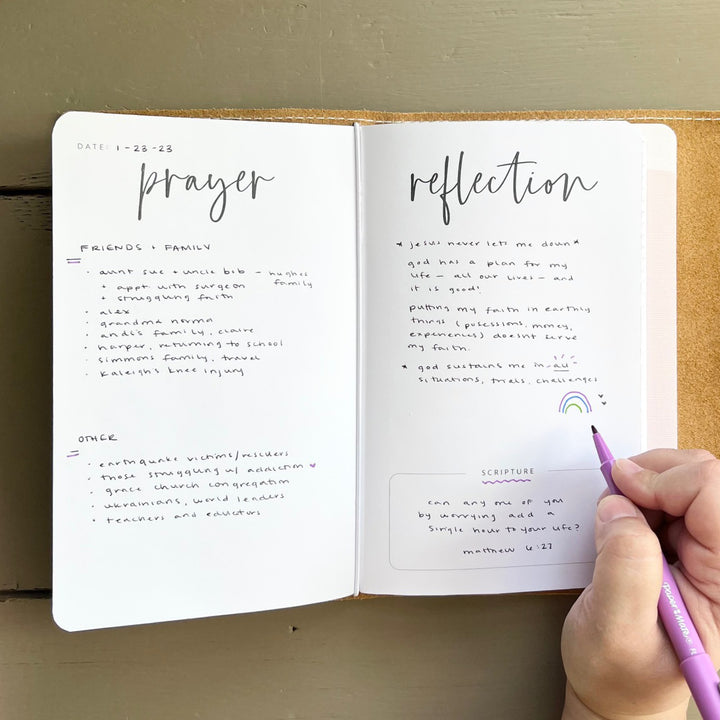 DATE: 1-23-23
prayer
FRIENDS + FAMILY
• aunt sue + uncle bob – hughes family
+ appt with surgeon
+ struggling faith
• alex
• grandma norma
• andi's family, claire
• harper, returning to school
• simmons family, travel
• kaleigh's knee injury
OTHER
• earthquake victims/rescuers
• those struggling w/ addiction ♥
• grace church congregation
• ukrainians, world leaders
• teachers and eductors
reflection
* jesus never lets me down *
god has a plan for my
life – all our lives – and
it is good!
putting my faith in earthly
things (posessions, money,
experiences) doesnt serve
my faith.
* god sustains me in all
situations, trials, challenges
SCRIPTURE
can any one of you
by worrying add a
single hour to your life?
matthew 6:27
PaperMate